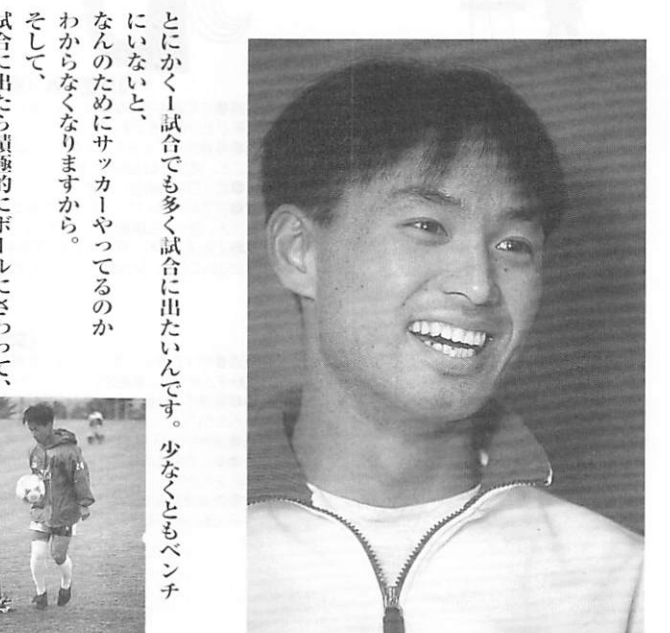 とにかく1試合でも多く試合に出たいんです。少なくともベンチ
にいないと、
なんのためにサッカーやってるのか
わからなくなりますから。
そして、
試合に出たら積極的にボールにさわって、